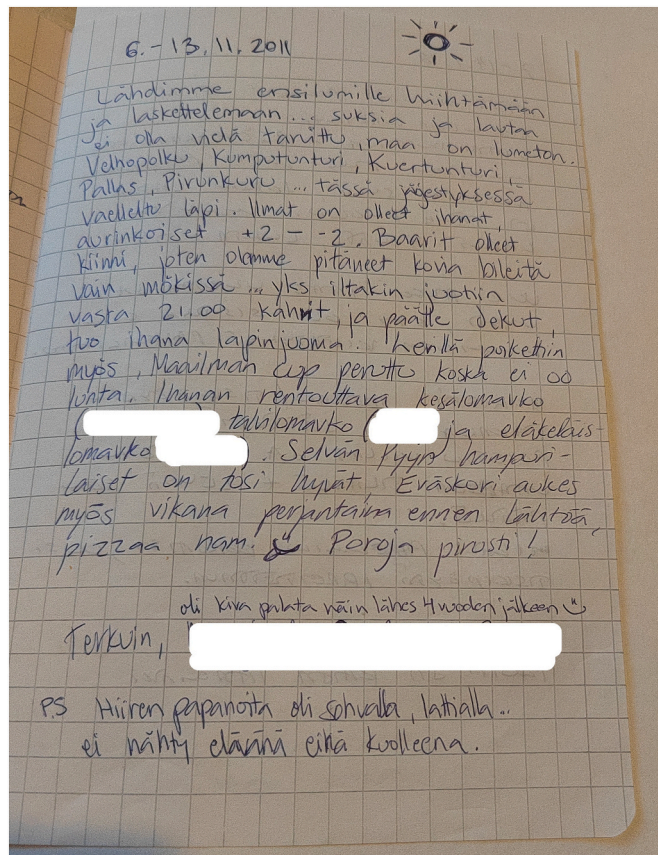 6.-13.11.2011
Lähdimme ensilumille hiihtämään
ja laskettelemaan... suksia ja lautaa
ei olla vielä tarvittu, maa on lumeton.
Velhopolku, Kumputunturi, Kuertunturi,
Pallas, Pirunkuru ... tässä järjestyksessä
vaelleltu läpi. Ilmat on olleet ihanat,
aurinkoiset +2 - -2. Baarit olleet
kiinni, joten olemme pitäneet kovia bileitä
vain mökissä ... yks iltakin juotiin
vasta 21.00 kahvit, ja päälle dekut,
tuo ihana lapinjuoma. Levillä poikettiin
myös, Maailman cup peruttu koska ei oo
lunta. Ihanan rentouttava kesälomaviko
( talvilomaviko ( ja eläkeläis-
lomaviko ). Selvän pyyn hampuri-
laiset on tosi hyvät. Eväskori aukes
myös vikana perjantaina ennen lähtöä,
pizzaa, nam! Poroja pirusti!
oli kiva palata näin lähes 4 vuoden jälkeen
Terkuin,
P.S Hiiren papanoita oli sohvalla, lattialla..
ei nähty elävänä eikä kuolleena.